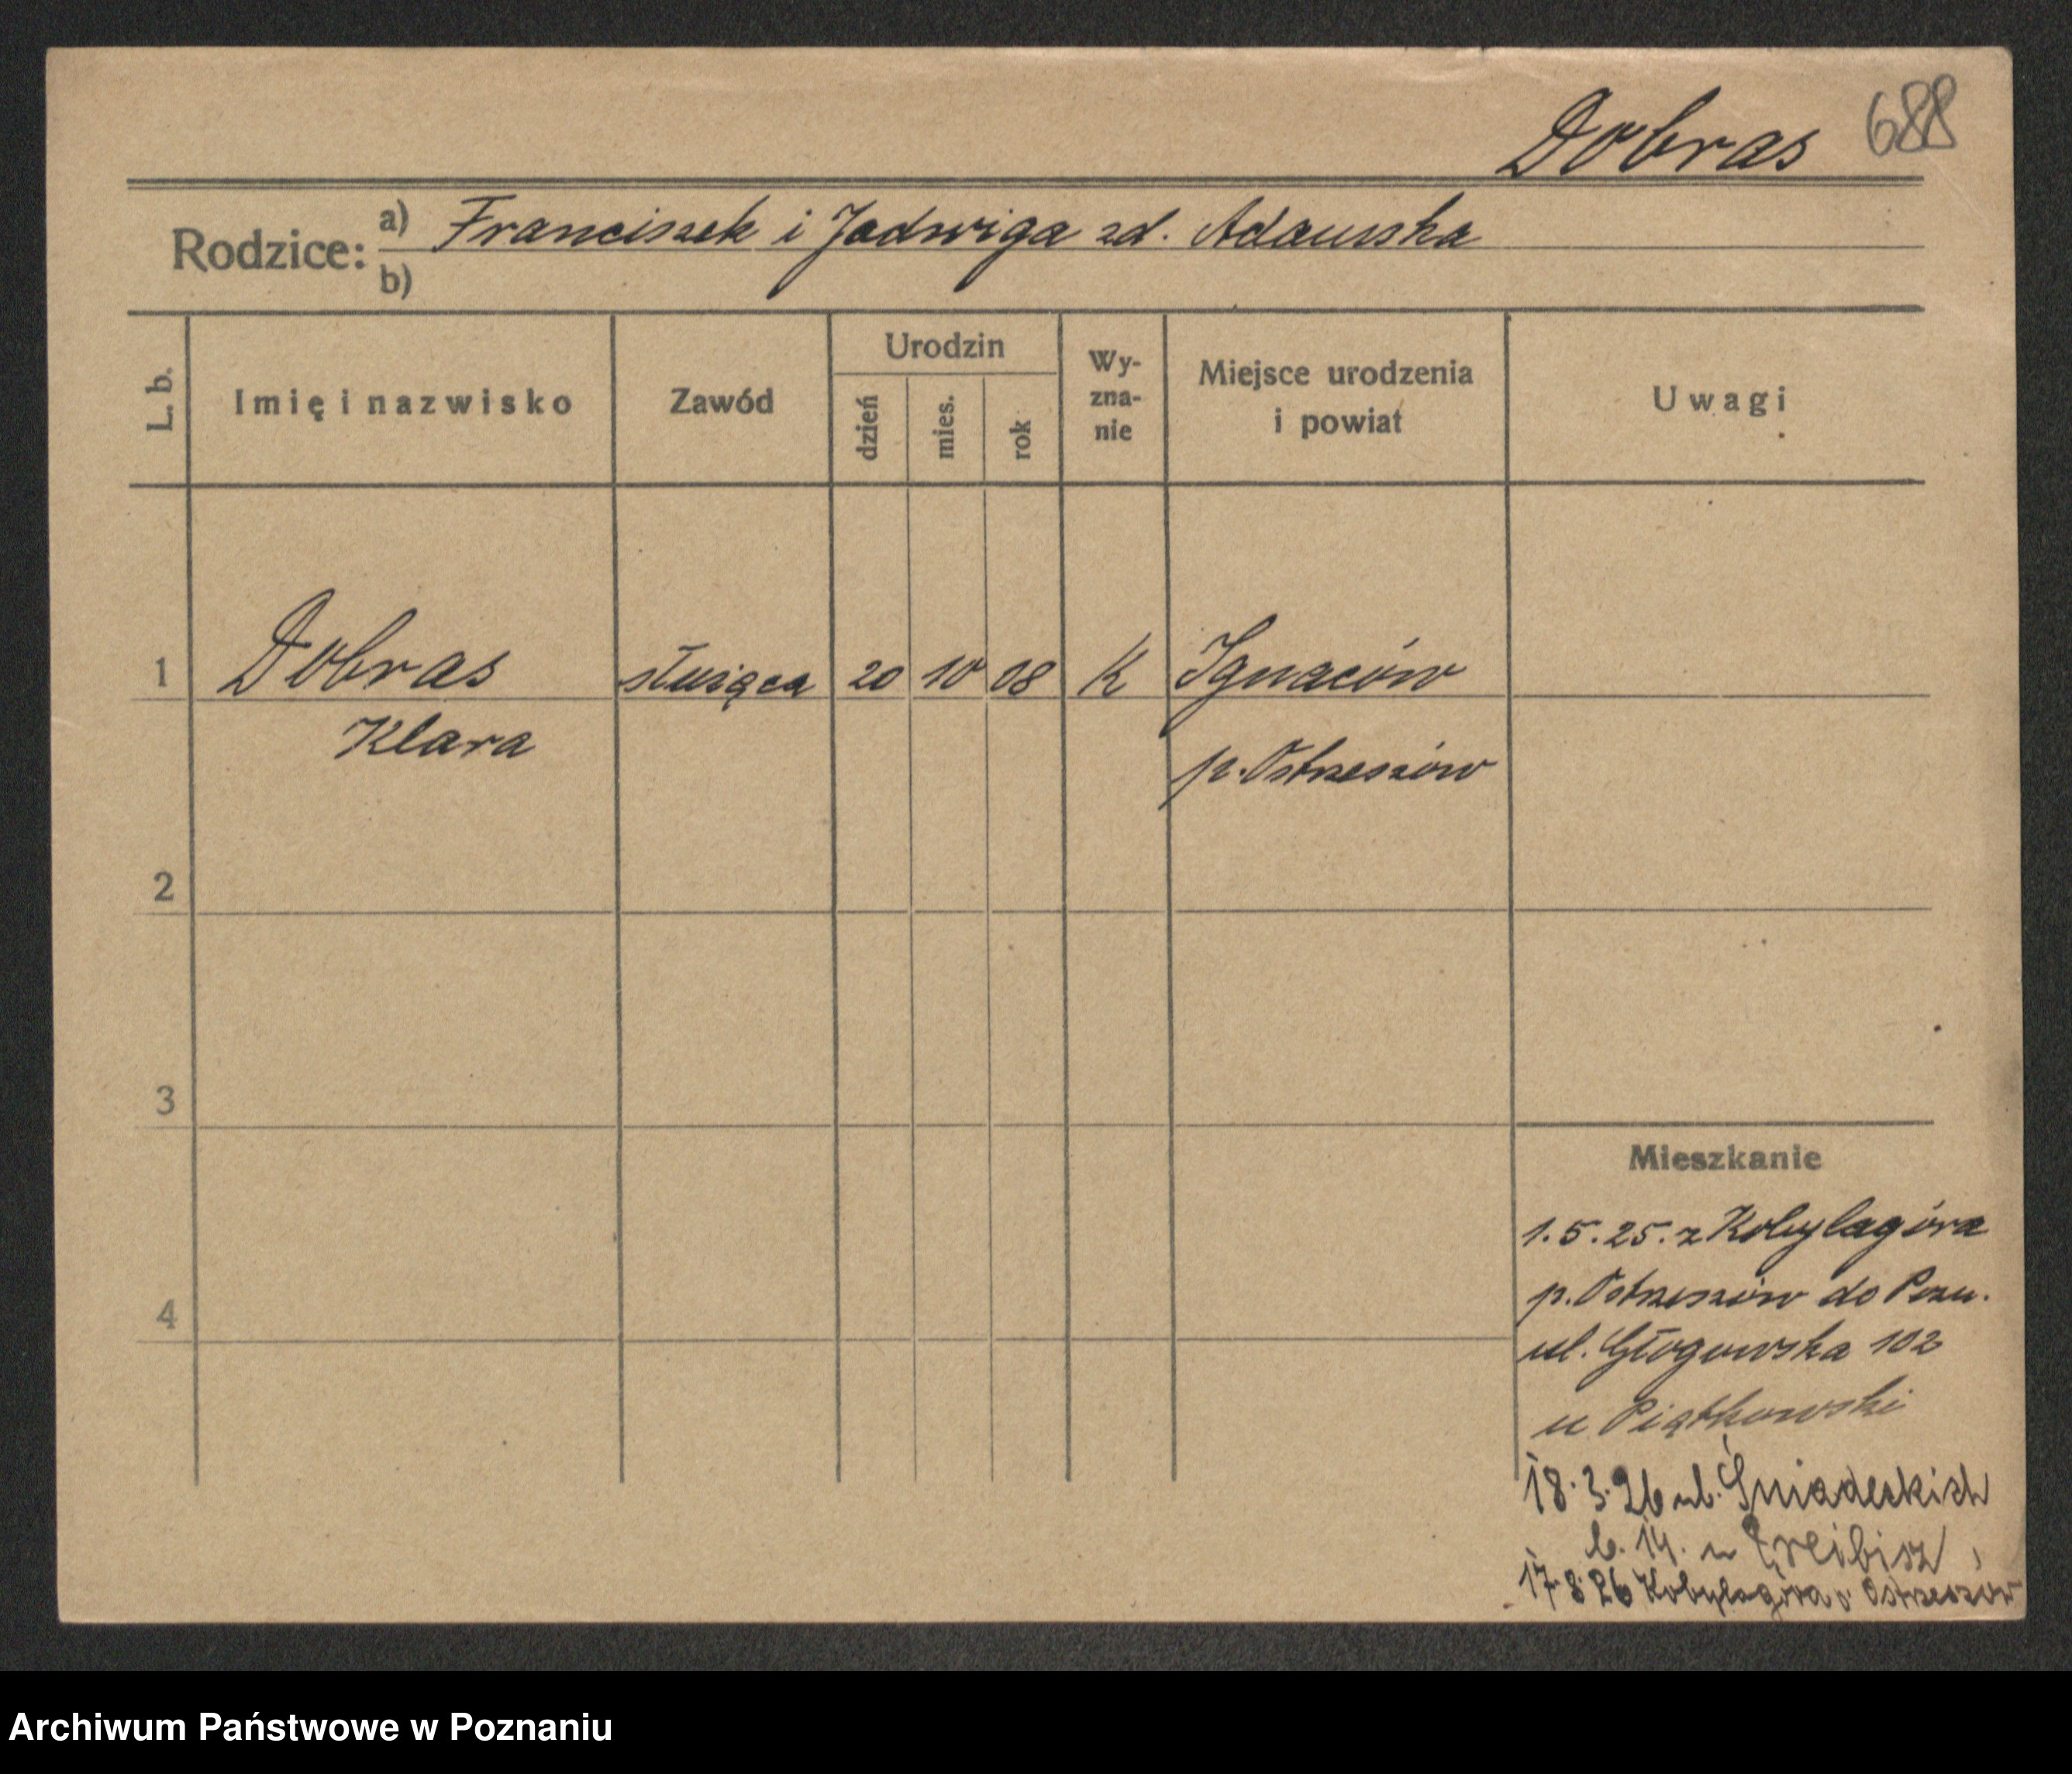 Dobras 688
Rodzice: a) Franciszek i Jadwiga zd. Adamska
b)
L. b. Imię i nazwisko Zawód Urodzin dzień mies. rok Wy-zna-nie Miejsce urodzenia i powiat Uwagi
1 Dobras służąca 20 10 08 K Ignaców
Klara p. Ostrzeszów
2
3
Mieszkanie
1.5.25. z Kobylagóra
4 p. Ostrzeszów do Pozn.
ul. Głogowska 102
u Piątkowski
18.3.26 ul. Śniadeckich
l. 14. u Greibisz
17.8.26 Kobylagóra Ostrzeszów
Archiwum Państwowe w Poznaniu